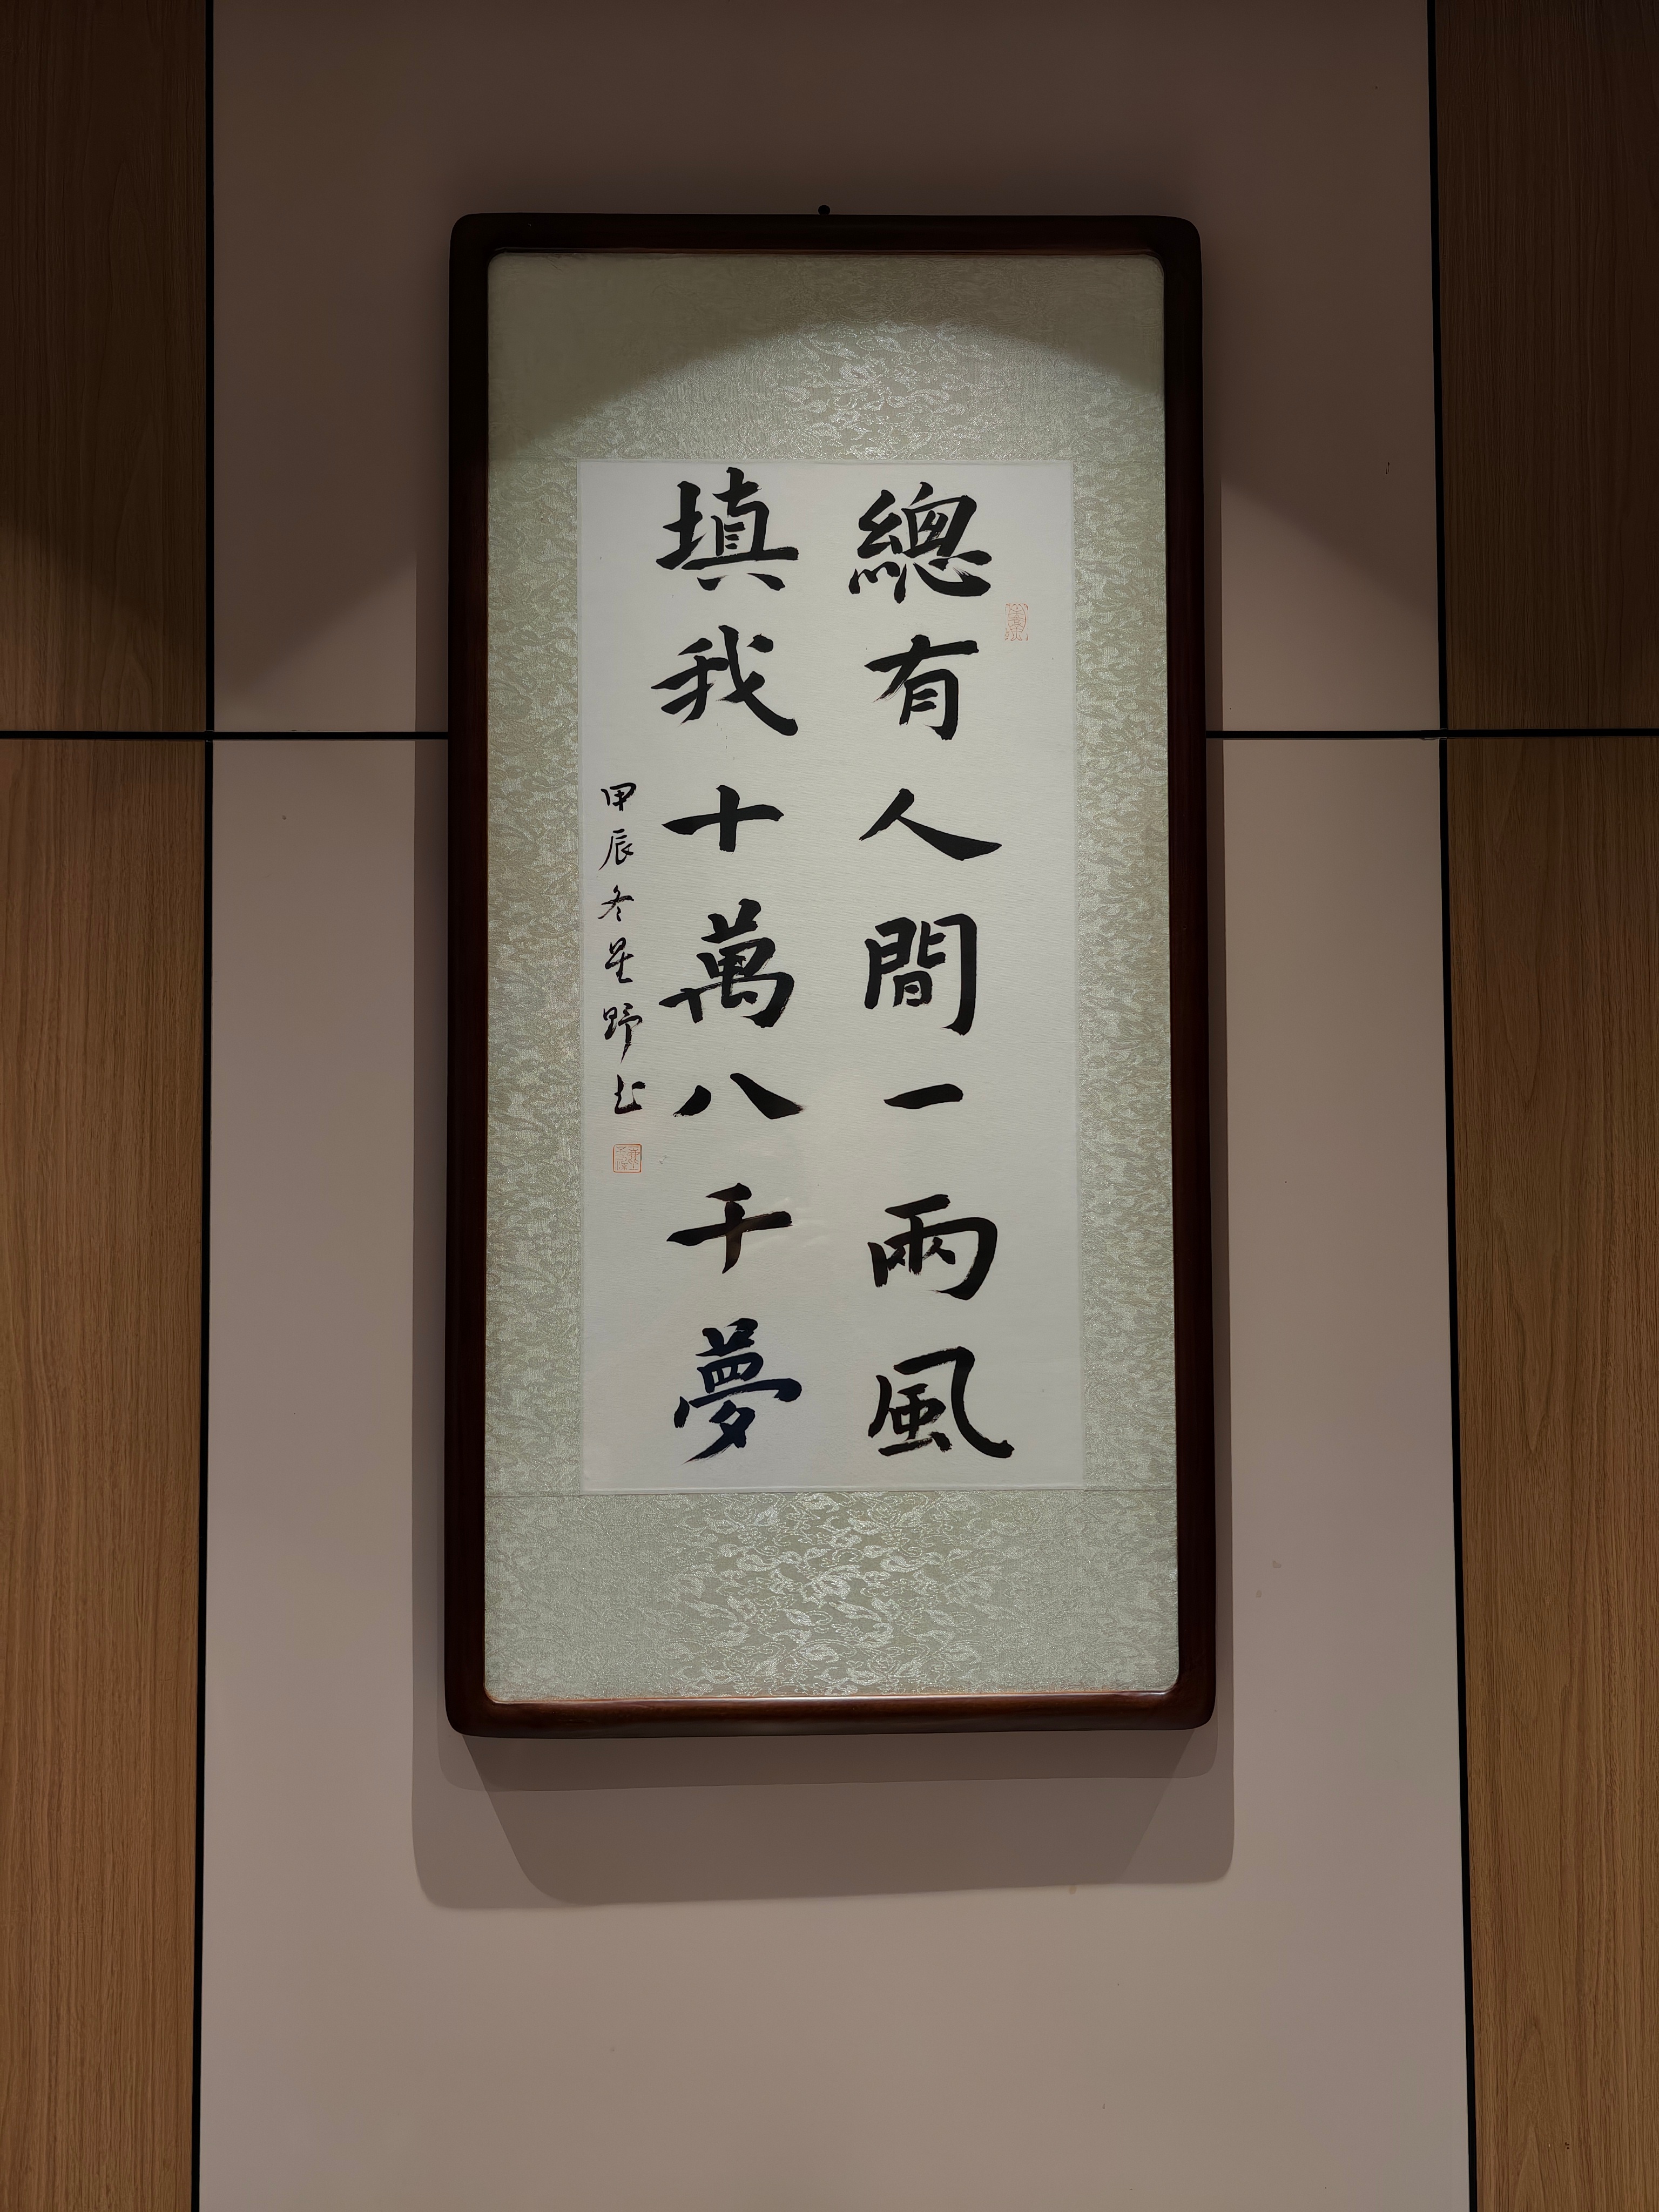 總有人間一兩風
填我十萬八千夢
甲辰冬星野书